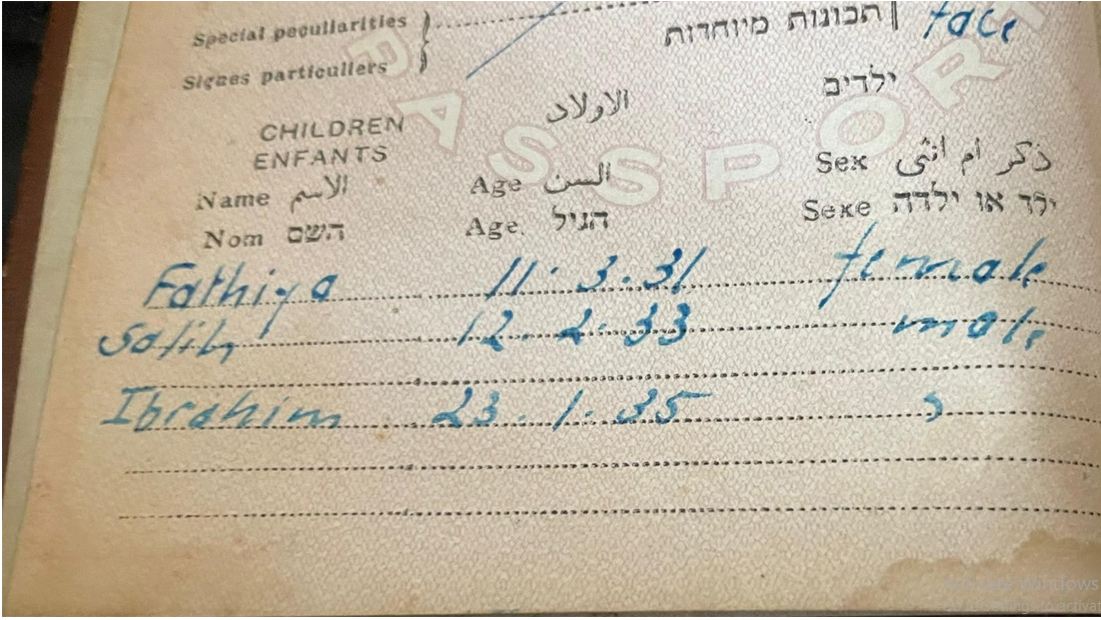 Special peculiarities } תכונות מיוחדות face
Signes particuliers
CHILDREN الاولاد ילדים
ENFANTS
Name الاسم Age السن Sex ذكر ام انثى
Nom השם Age. הגיל Sexe ילד או ילדה
PASSPOR
Fathiya 11.3.31 female
Salih 12.2.33 male
Ibrahim 23.1.35 "